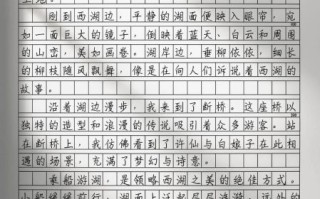 刚到西湖边，平静的湖面便映入眼帘，宛
如一面巨大的镜子，倒映着蓝天、白云和周围
的山峦，美如画卷。湖岸边，垂柳依依，细长
的柳枝随风飘舞，像是在向人们诉说着西湖的
故事。
沿着湖边漫步，我来到了断桥。这座桥以
独特的造型和浪漫的传说吸引着众多游客。站
在断桥上，我仿佛看到了许仙与白娘子在此相
遇的场景，充满了梦幻与诗意。
乘船游湖，是领略西湖之美的绝佳方式。